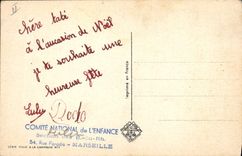 chère tati
à l'occasion de Noël
je te souhaite une
heureuse fête
Lulu Dodo
COMITÉ NATIONAL de L'ENFANCE
54, Rue Paradis - MARSEILLE
Imprimé en France